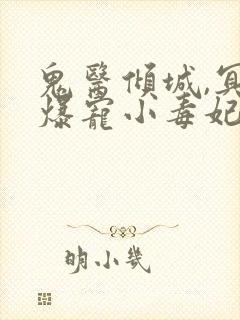 鬼醫傾城,冥
爆寵小毒妃
明小幾